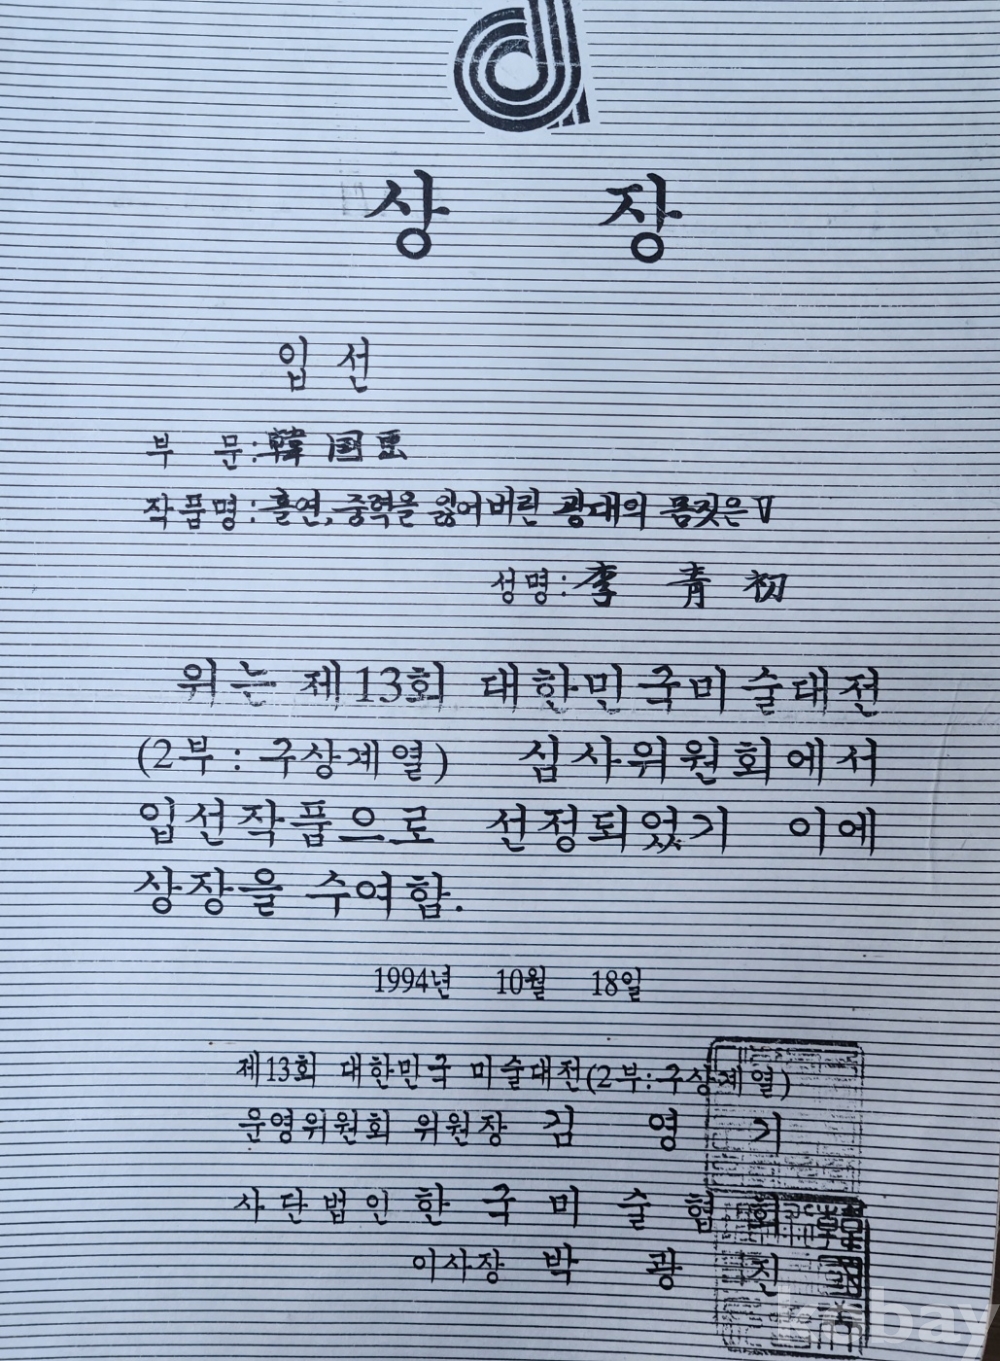 상 장
입 선
부 문 : 韓國画
작품명 : 홀연, 중력을 잃어버린 광대의 몸짓은 Ⅴ
성명 : 李 青 初
위는 제13회 대한민국미술대전
(2부 : 구상계열) 심사위원회에서
입선작품으로 선정되었기 이에
상장을 수여함.
1994년 10월 18일
제13회 대한민국 미술대전(2부:구상계열)
운영위원회 위원장 김 영 기
사단법인 한 국 미 술 협 회
이사장 박 광 진